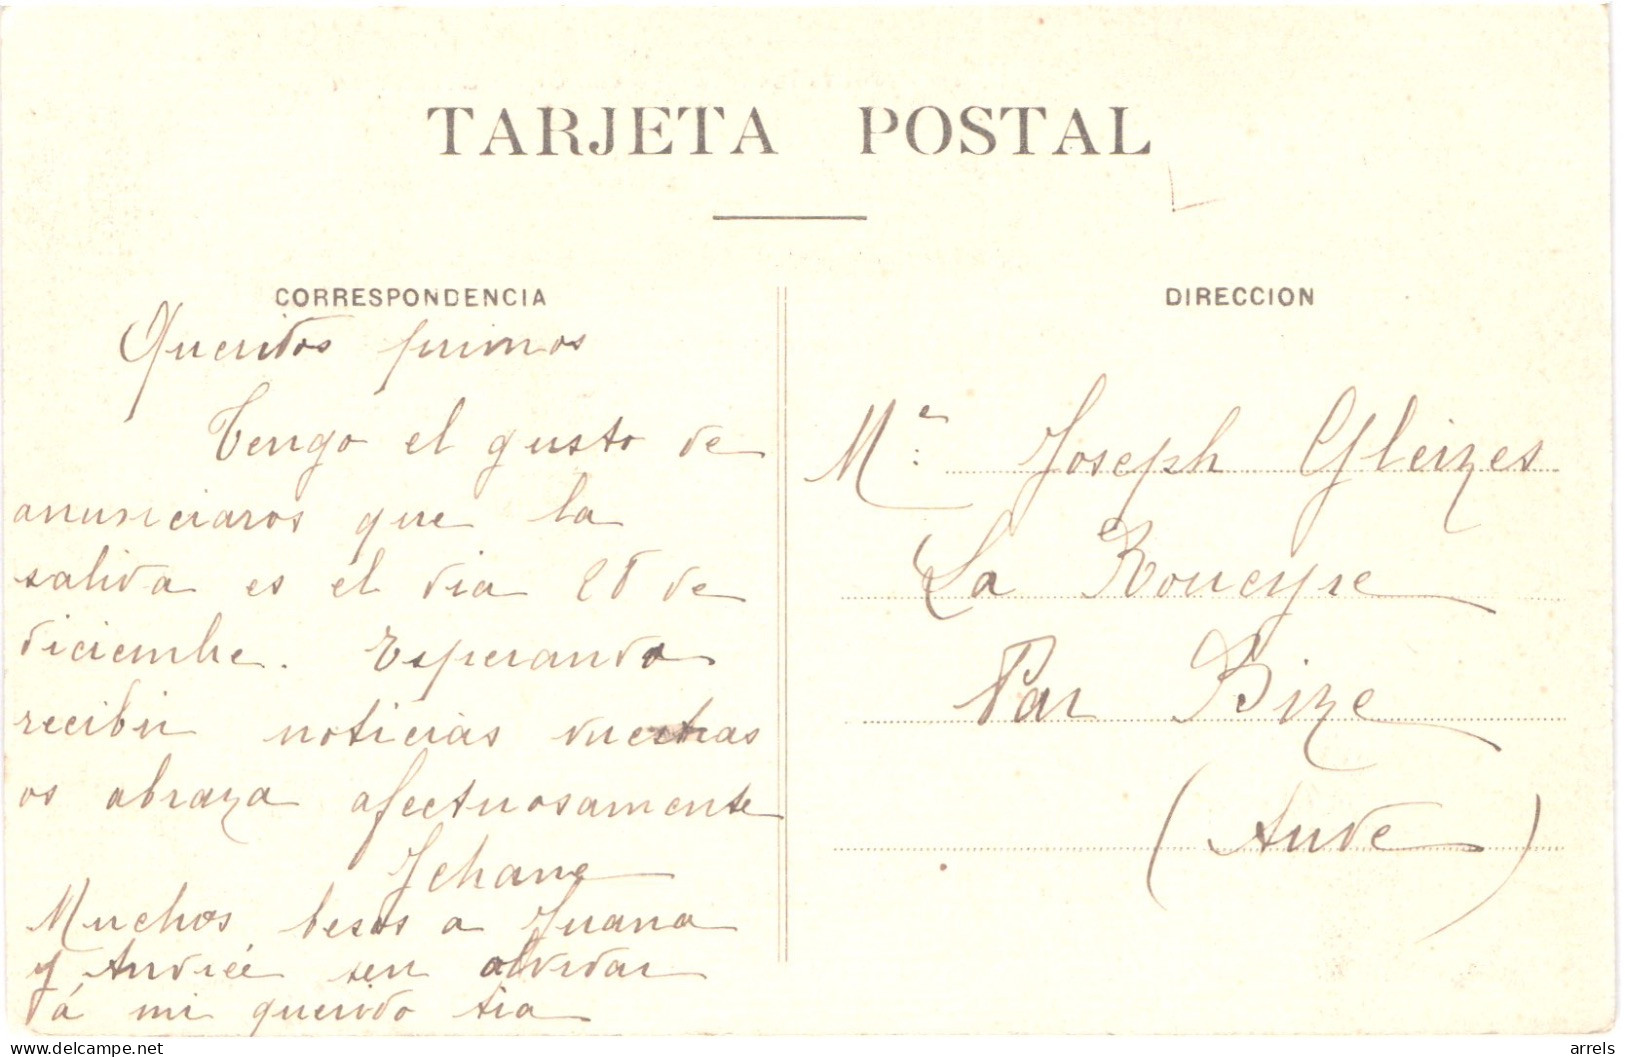 TARJETA POSTAL
CORRESPONDENCIA
Queridos primos
Tengo el gusto de
anunciaros que la
salida es el dia 28 de
diciembre. Esperando
recibir noticias vuestras
os abraza afectuosamente
Jehane
Muchos besos a Juana
y Andrée sin olvidar
á mi querido tia
DIRECCION
Me: Joseph Gleizes
La Roueyre
Par Bize
(Aude)
arrels
delcampe.net